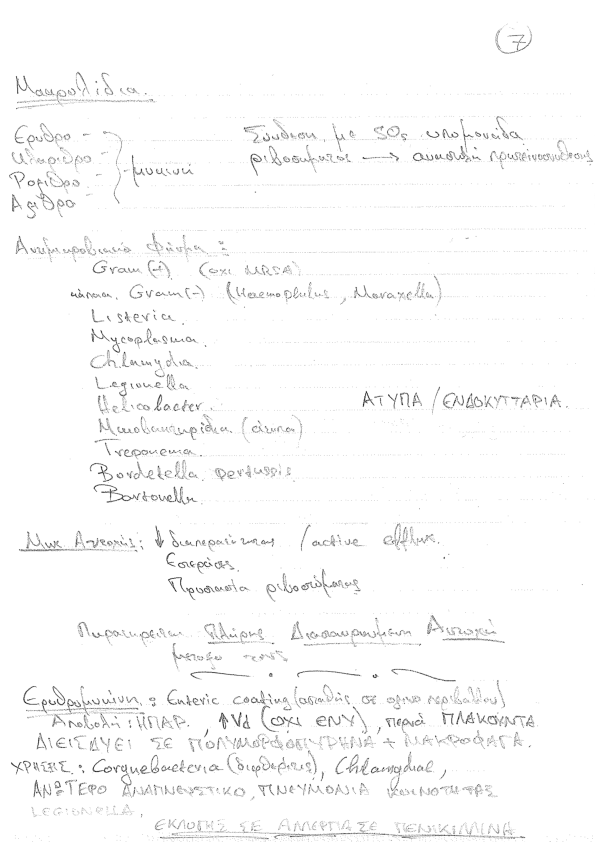 7
Μακρολίδια.
Ερυθρο - Σύνδεση με 50s υπομονάδα
Κλαριθρο - ριβοσώματος → αναστολή πρωτεϊνοσύνθεσης
Ροξιθρο - -μυκινη
Αζιθρο -
Αντιμικροβιακό Φάσμα :
Gram (+) (οχι MRSA)
κάποια Gram(-) (Haemophilus, Moraxella)
Listeria.
Mycoplasma.
Chlamydia.
Legionella
Helicobacter. ΑΤΥΠΑ / ΕΝΔΟΚΥΤΤΑΡΙΑ.
Μυκοβακτηρίδια (άτυπα)
Treponema.
Bordetella pertussis.
Bartonella.
Μηχ Αντοχής: ↓ διαπερατότητας / active efflux.
Εστεράσες.
Προστασία ριβοσώματος
Παρατηρείται Πλήρης Διασταυρούμενη Αντοχή
μεταξύ τους
Ερυθρομυκίνη : Enteric coating (ασταθής σε οξινο περιβάλλον)
Αποβολή : ΗΠΑΡ, ↑Vd (ΟΧΙ ΕΝΥ), περνά ΠΛΑΚΟΥΝΤΑ
ΔΙΕΙΣΔΥΕΙ ΣΕ ΠΟΛΥΜΟΡΦΟΠΥΡΗΝΑ + ΜΑΚΡΟΦΑΓΑ.
ΧΡΗΣΕΙΣ : Corynebacteria (διφθερίτις), Chlamydial,
ΑΝΩΤΕΡΟ ΑΝΑΠΝΕΥΣΤΙΚΟ, ΠΝΕΥΜΟΝΙΑ ΚΟΙΝΟΤΗΤΑΣ
LEGIONELLA,
ΕΚΛΟΓΗΣ ΣΕ ΑΛΛΕΡΓΙΑ ΣΕ ΠΕΝΙΚΙΛΛΙΝΑ